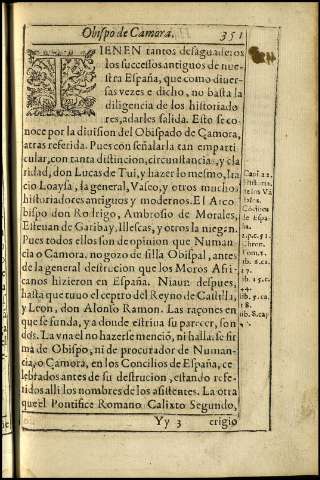 Obispo de Çamora. 351
TIENEN tantos desaguaderos
los sucessos antiguos de nue-
stra España, que como diuer-
sas vezes e dicho, no basta la
diligencia de los historiado
res, darles salida. Esto se co-
noce por la diuision del Obispado de Çamora,
atras referida. Pues con señalarla tan emparti
cular, con tanta distincion, circunstancia, y cla
ridad, don Lucas de Tui, y hazer lo mesmo, Ita
cio Loaysa, la general, Vaseo, y otros muchos
historiadores antiguos y modernos. El Arco
bispo don Rodrigo, Ambrosio de Morales,
Esteuan de Garibay, Illescas, y otros la niegan.
Pues todos ellos son de opinion que Numan-
cia o Çamora, no gozo de silla Obispal, antes
de la general destrucion que los Moros Afri-
canos hizieron en España. Ni aun despues,
hasta que tuuo el ceptro del Reyno de Castilla,
y Leon, don Alonso Ramon. Las raçones en
que se funda, y a donde estriua su parecer, son
dos. La vna el no hazerse menció, ni halla se fir
ma de Obispo, ni de procurador de Numan-
cia, o Çamora, en los Concilios de España, ce
lebrados antes de su destrucion, estando refe-
ridos alli los nombres de los asistentes. La otra
que el Pontifice Romano Calixto Segundo,
Yy 3 erigio
historia.
de España.
2.p.c.51.
Chron.
Tom.2.
lib. 8.ca.
17.
lib. 15.c.
44.
lib. 5. ca.
18.
lib. 8.cap